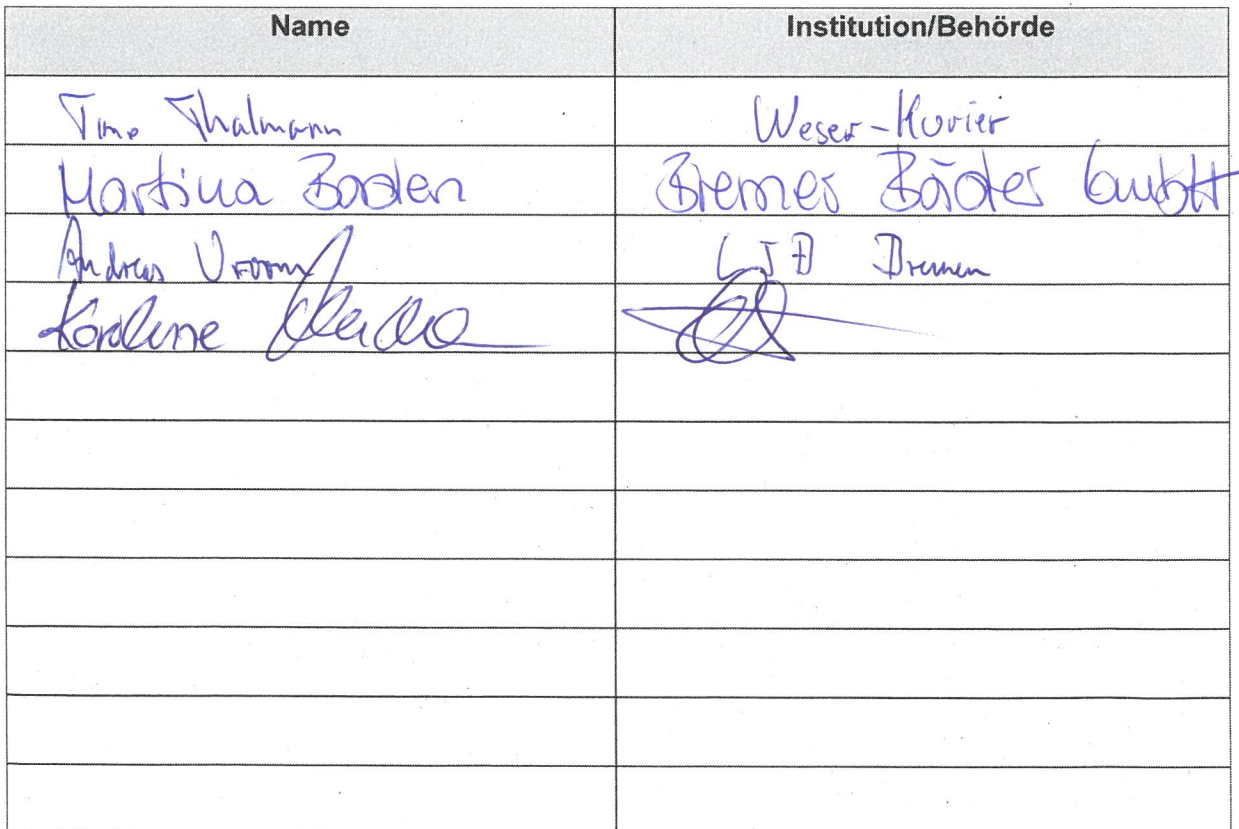 Name Institution/Behörde
Timo Thalmann Weser-Kurier
Martina Baden Bremer Bäder GmbH
Andreas LSB Bremen
Karoline